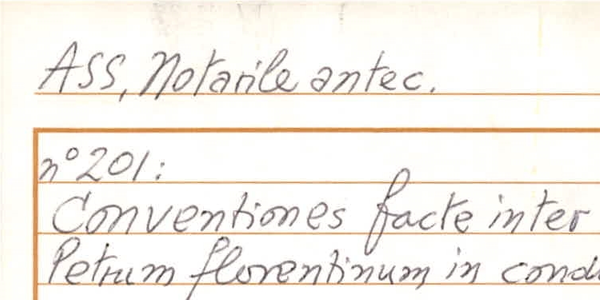 ASS, Notarile antec.
n° 201:
Conventiones facte inter
Petrum florentinum in cond